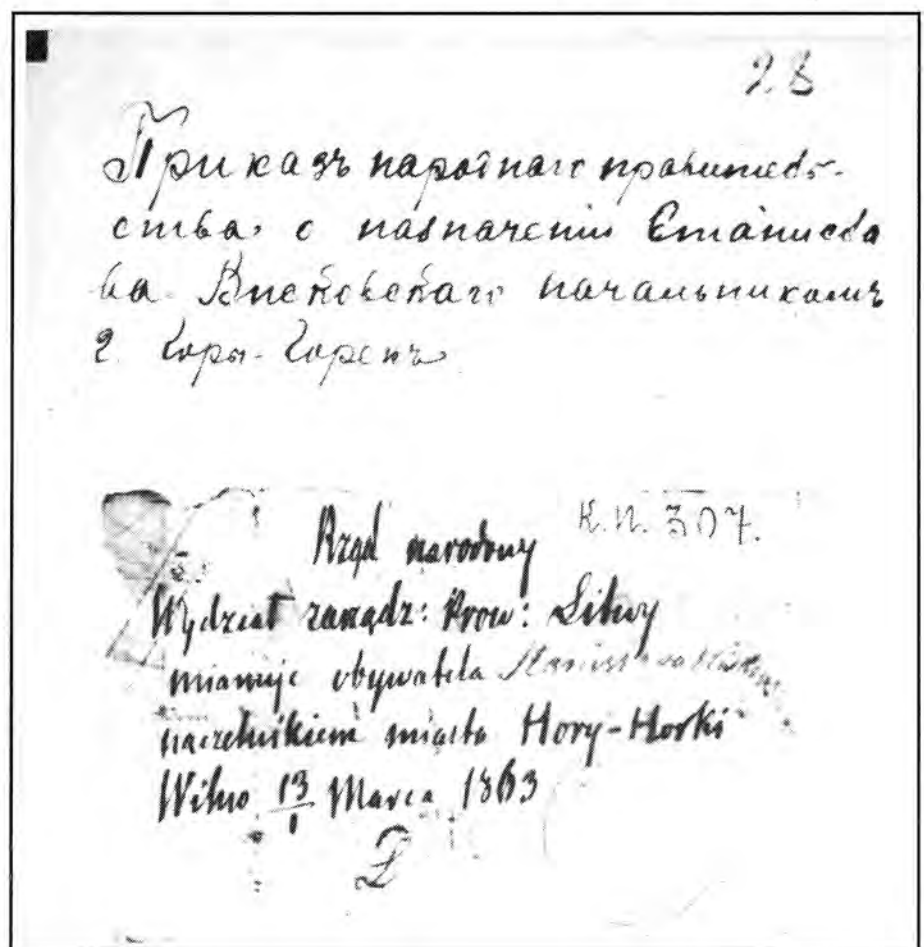 28
Приказъ народнаго правитель-
ства, о назначеніи Станисла
ва Висковскаго начальникомъ
г. Горы-Горекъ
K. N. 307.
Rząd narodowy
Wydział zarządz: Prow: Litwy
mianuje obywatela Stanisława
naczelnikiem miasta Hory-Horki
Wilno 13/1 Marca 1863